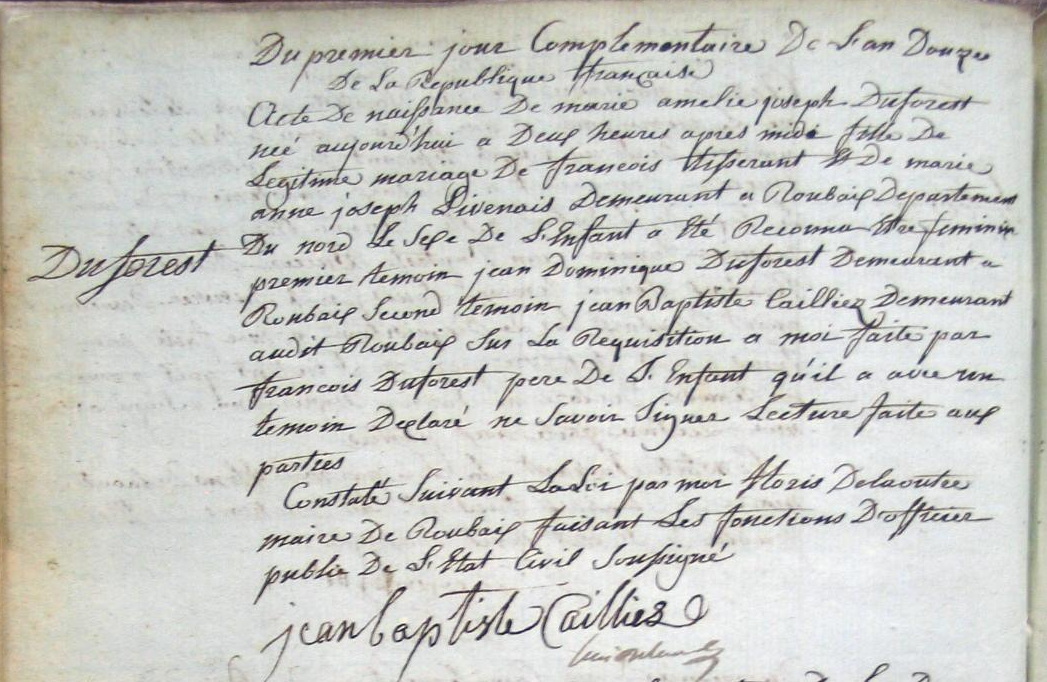 Du premier jour Complementaire De L'an Douze
De La Republique française
Acte De naissance De marie amelie joseph Duforest
neé aujourd'hui a Deux heures apres midi fille De
Legitime mariage De francois tisserant Et De marie
anne joseph Livenais Demeurant a Roubaix Departement
Duforest
Du nord Le Sexe De L'Enfant a Eté Reconnu Etre feminin
premier temoin jean Dominique Duforest Demeurant a
Roubaix Second temoin jean Baptiste Cailliez Demeurant
audit Roubaix Sur La Requisition a moi faite par
francois Duforest pere De L'Enfant qu'il a avec un
temoin Declaré ne Savoir Signer Lecture faite aux
parties
Constaté Suivant La Loi par moi floris Delaoutre
maire De Roubaix faisant Les fonctions D'officier
public De L'Etat Civil Soussigné
jean baptiste Cailliez